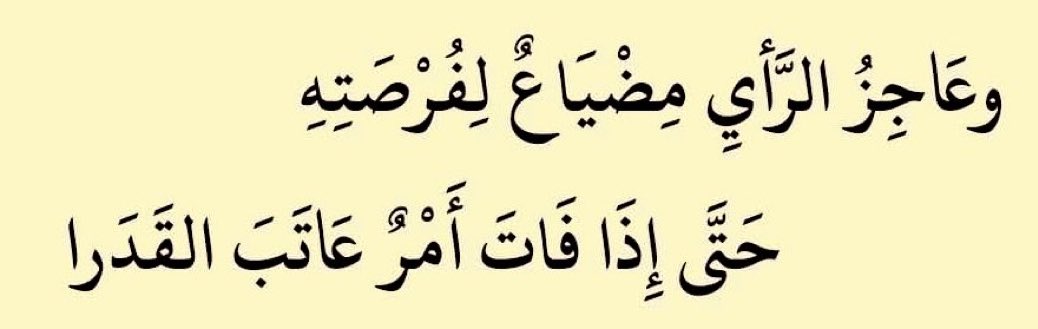 وعَاجِزُ الرَّأيِ مِضْيَاعٌ لِفُرْصَتِهِ
حَتَّى إِذَا فَاتَ أَمْرٌ عَاتَبَ القَدَرا